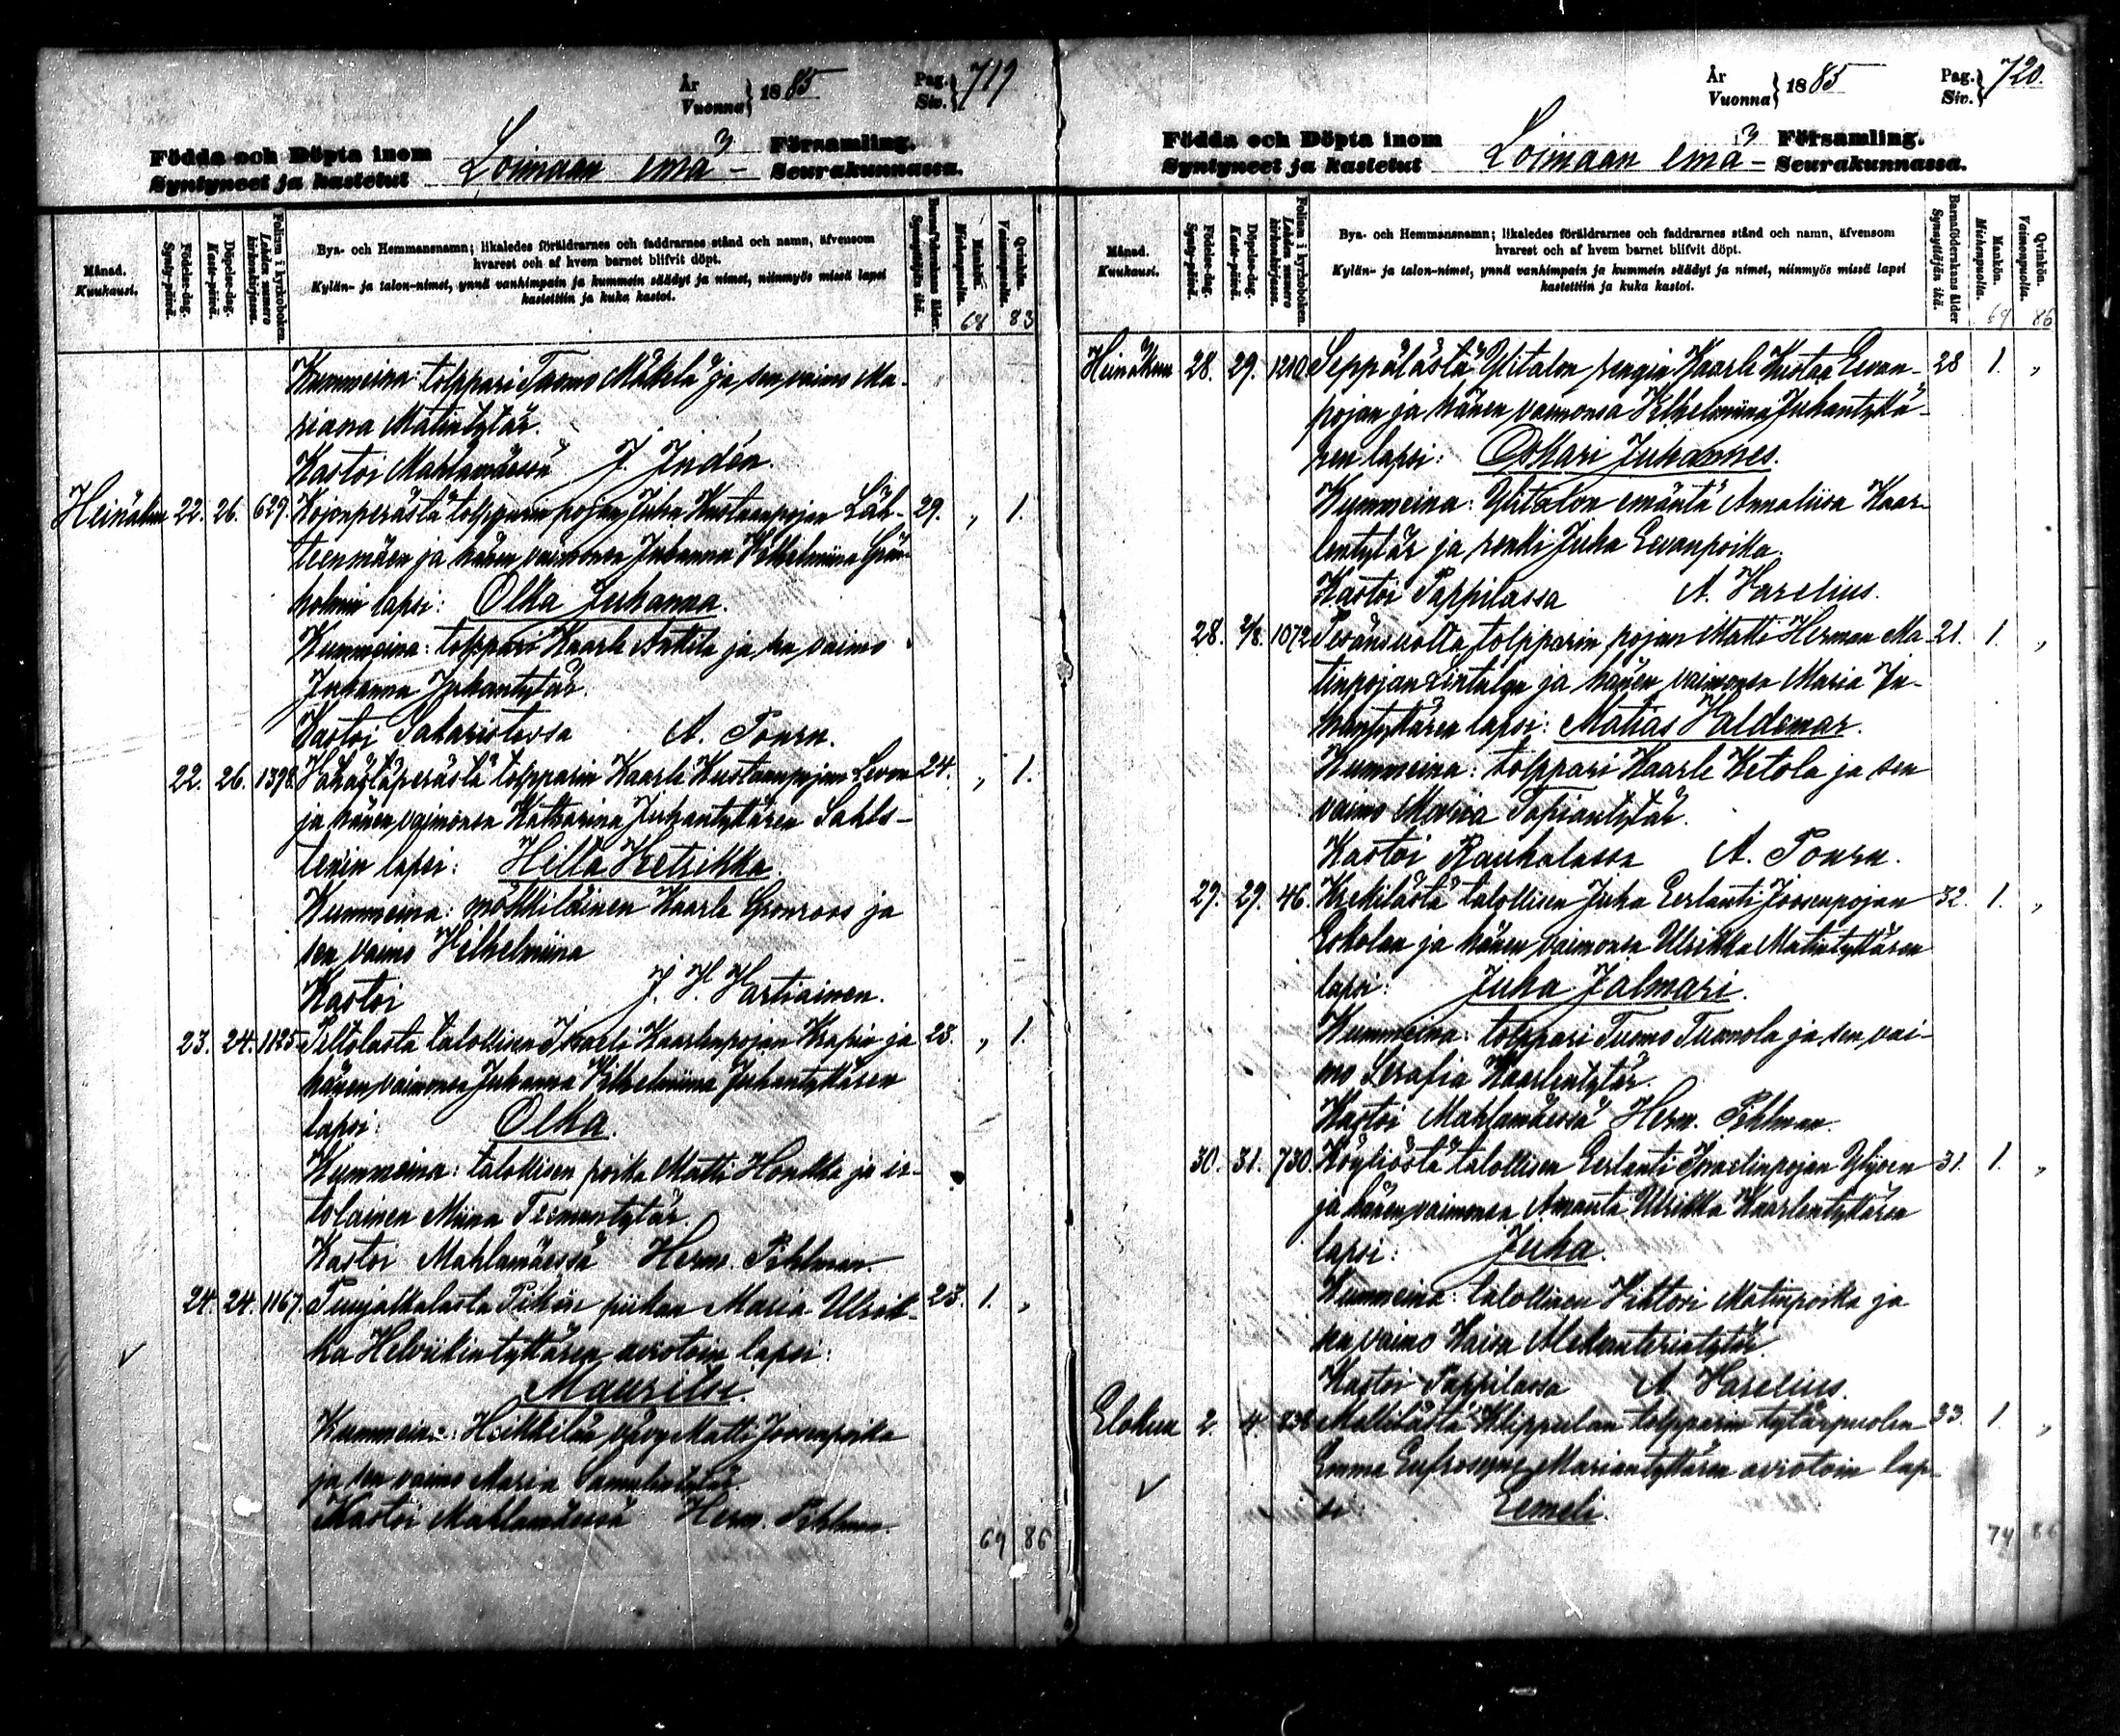 År
Vuonna } 1885 Pag. Siv. } 719
Födda och Döpta inom
Syntyneet ja kastetut Loimaan emä- Församling.
Seurakunnassa.
Månad.
Kuukausi.
Födelse-dag.
Synty-päivä.
Döpelse-dag.
Kaste-päivä.
Folium i kyrkoboken.
Lehden numero kirkonkirjassa.
Bya- och Hemmansnamn; likaledes föräldrarnes och faddrarnes stånd och namn, äfvensom
hvarest och af hvem barnet blifvit döpt.
Kylän- ja talon-nimet, ynnä vanhimpain ja kummein säädyt ja nimet, niinmyös missä lapsi
kastettiin ja kuka kastoi.
Barnaföderskans ålder.
Synnyttäjän ikä.
Mankön.
Miehenpuolia.
Qvinkön.
Vaimonpuolia.
68 83
Kummeina: tolppari Tuomo Mäkelä ja sen vaimo Ma-
riana Matintytär.
Kastoi Mahlamäessä J. Indén.
Heinäkuu 22. 26. 629. Kojonperästä tolpparin pojan Juha Kustaanpojan Läh- 29. „ 1.
teenmäen ja hänen vaimonsa Juhanna Vilhelmiina Grön-
holmin lapsi: Olka Juhanna.
Kummeina: tolppari Kaarle Anttila ja sen vaimo
Juhanna Juhantytär.
Kastoi Sakaristossa A. Pourn.
22. 26. 1398. tolpparin Kaarle Kustaanpojan Levon 24. „ 1.
ja hänen vaimonsa Katharina Juhantyttären Sahls-
tenin lapsi: Hilta Hetrikka.
Kummeina: mökkiläinen Kaarle Grönroos ja
sen vaimo Vilhelmiina
Kastoi J. V. Vartiainen.
23. 24. 1125. Peltolasta talollisen Israeli Kaarlenpojan Krapin ja 28. „ 1.
hänen vaimonsa Juhanna Vilhelmiina Juhantyttären
lapsi: Olka.
Kummeina: talollisen poika Matti Honkka ja is-
tolainen Miina Termuntytär.
Kastoi Mahlamäessä Herm. Pihlman.
24. 24. 1167. Piikan Maria Ulrik- 23. 1. „
ka Helviikintyttären aviotoin lapsi:
Mauritsi.
Kummeina: Heikkilän vävy Matti Joosenpoika
ja sen vaimo Maria Samulintytär.
Kastoi Mahlamäessä Herm. Pihlman.
69 86
År
Vuonna } 1885 Pag. Siv. } 720.
Födda och Döpta inom
Syntyneet ja kastetut Loimaan emä- Församling.
Seurakunnassa.
Månad.
Kuukausi.
Födelse-dag.
Synty-päivä.
Döpelse-dag.
Kaste-päivä.
Folium i kyrkoboken.
Lehden numero kirkonkirjassa.
Bya- och Hemmansnamn; likaledes föräldrarnes och faddrarnes stånd och namn, äfvensom
hvarest och af hvem barnet blifvit döpt.
Kylän- ja talon-nimet, ynnä vanhimpain ja kummein säädyt ja nimet, niinmyös missä lapsi
kastettiin ja kuka kastoi.
Barnaföderskans ålder
Synnyttäjän ikä.
Mankön.
Miehenpuolia.
Qvinkön.
Vaimonpuolia.
69 86
Heinäkuu 28. 29. 1210. Seppälästä Ylitalon rengin Kaarle Kustaa Eevan- 28 1. „
pojan ja hänen vaimonsa Vilhelmiina Juhantyttä-
ren lapsi: Oskari Juhannes.
Kummeina: Ylitalon emäntä Annaliisa Kaar-
lentytär ja renki Juha Eevanpoika.
Kastoi Pappilassa A. Varelius.
28. 2/8. 1072 Peränsuolta tolpparin pojan Matti Herman Ma- 21. 1. „
tinpojan Lintulan ja hänen vaimonsa Maria Ju-
hantyttären lapsi: Matias Valdemar.
Kummeina: tolppari Kaarle Ketola ja sen
vaimo Maria Topiantytär.
Kastoi Rauhalassa A. Pourn.
29. 29. 46. Krekilästä talollisen Juha Eerlanti Joosenpojan 32. 1. „
Eskolan ja hänen vaimonsa Ulrikka Matintyttären
lapsi: Juha Jalmari.
Kummeina: tolppari Tuomo Tuomola ja sen vai-
mo Serafia Kaarlentytär.
Kastoi Mahlamäessä Herm. Pihlman.
30. 31. 730. Köyliöstä talollisen Eerlanti Israelinpojan Ylijoen 31. 1. „
ja hänen vaimonsa Amanta Ulrikka Kaarlentyttären
lapsi: Juha.
Kummeina: talollinen Vihtori Matinpoika ja
sen vaimo Kaisa Aleksanterintytär
Kastoi Pappilassa A. Varelius.
Elokuu 2. 4. 838 Mällilästä Klippulan tolpparin tytärpuolen 33. 1. „
Emma Eufrosyne Mariantyttären aviotoin lap-
si: Eemeli.
74 86